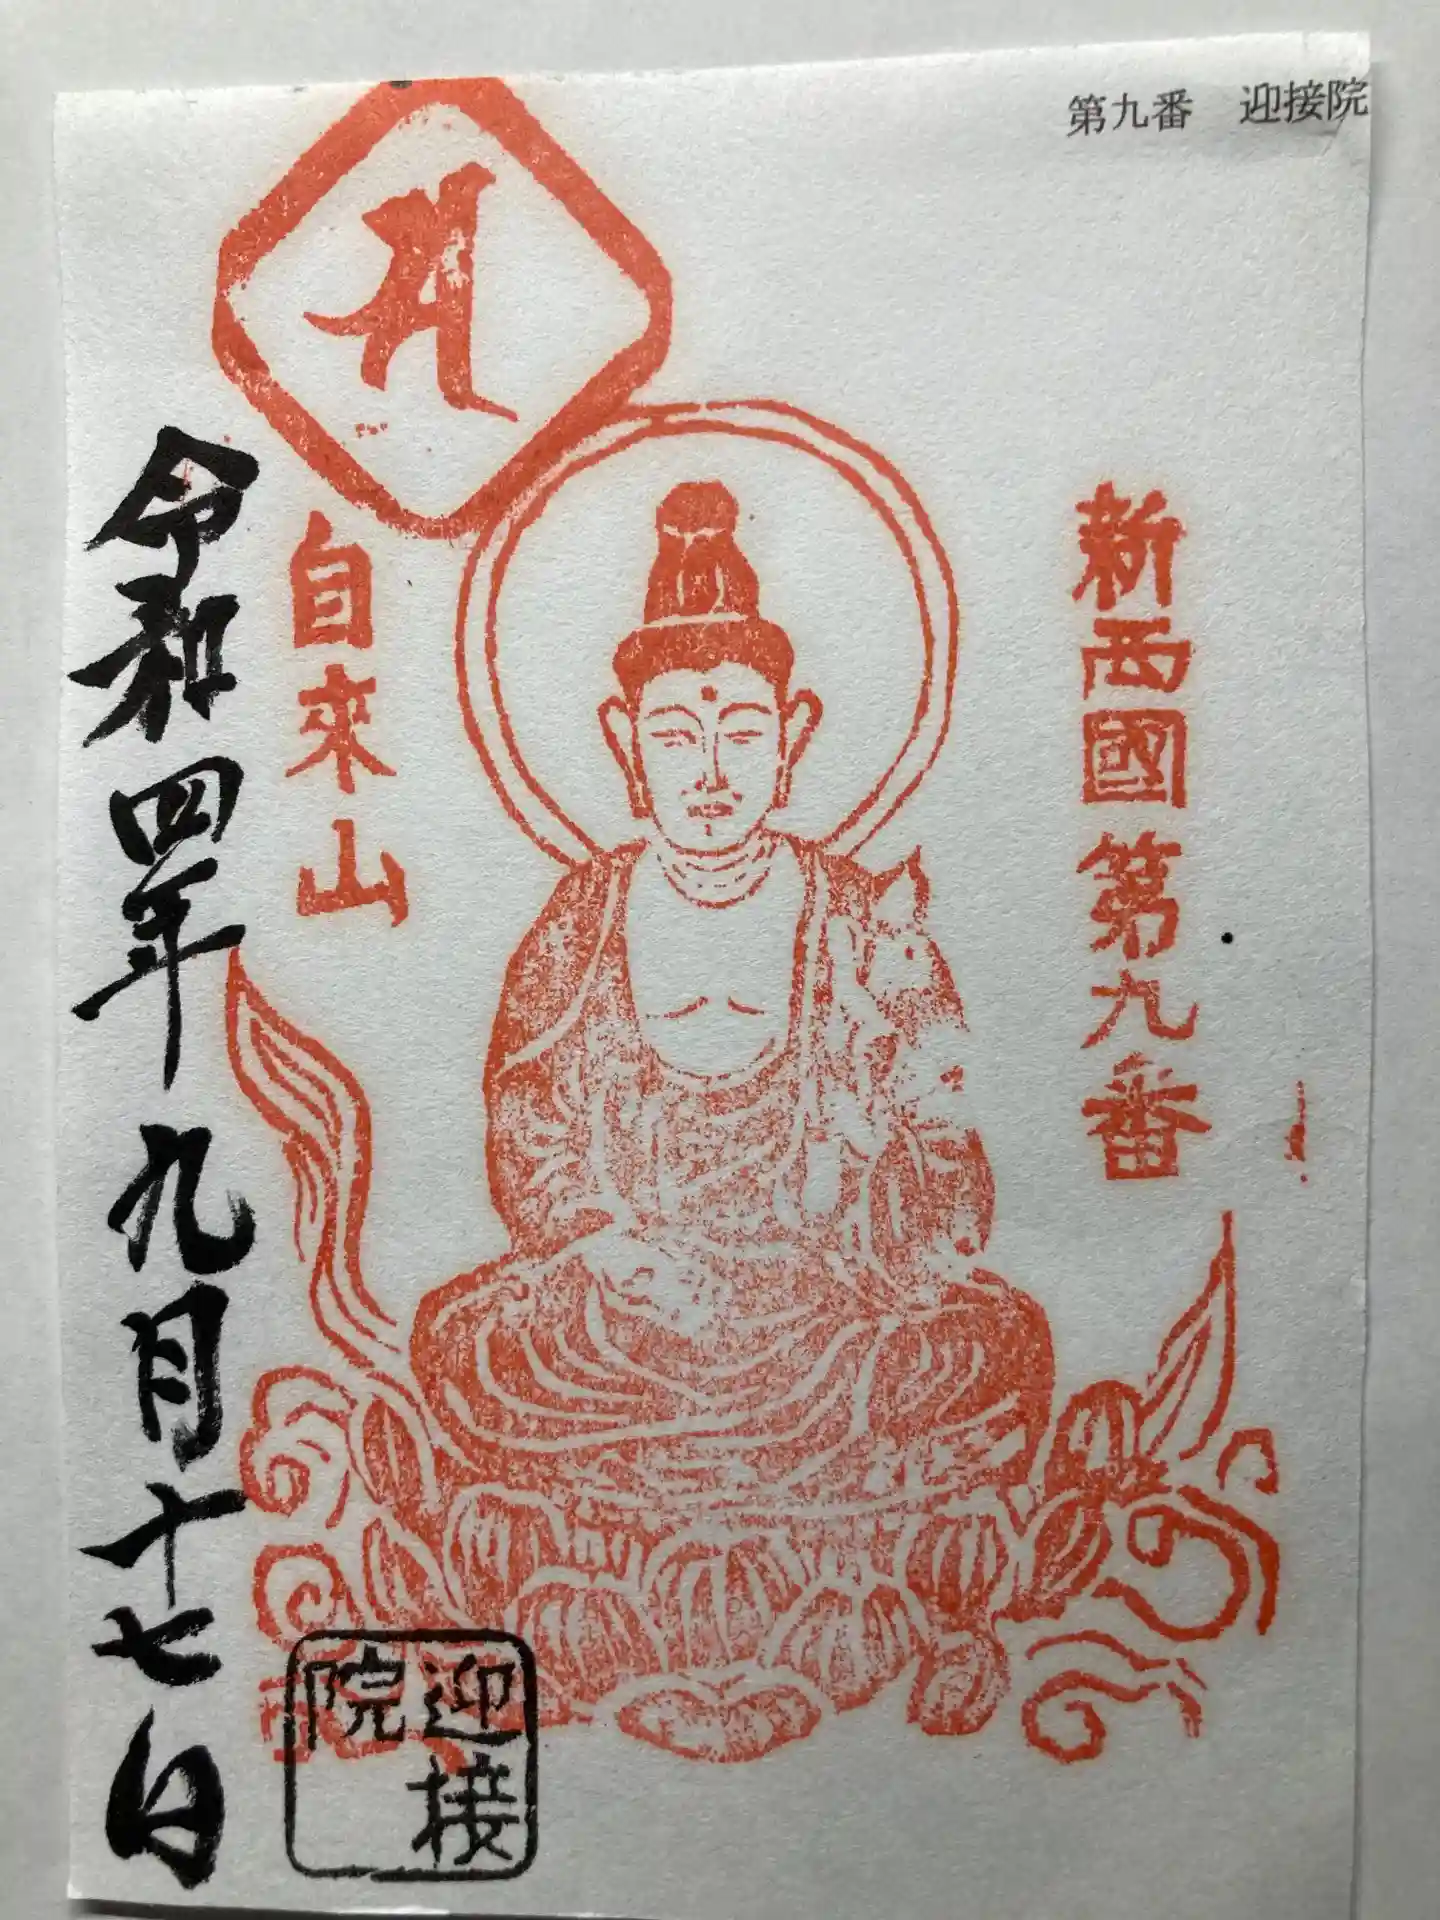 第九番　迎接院
新西國第九番
自來山
令和四年九月十七日
迎接
院